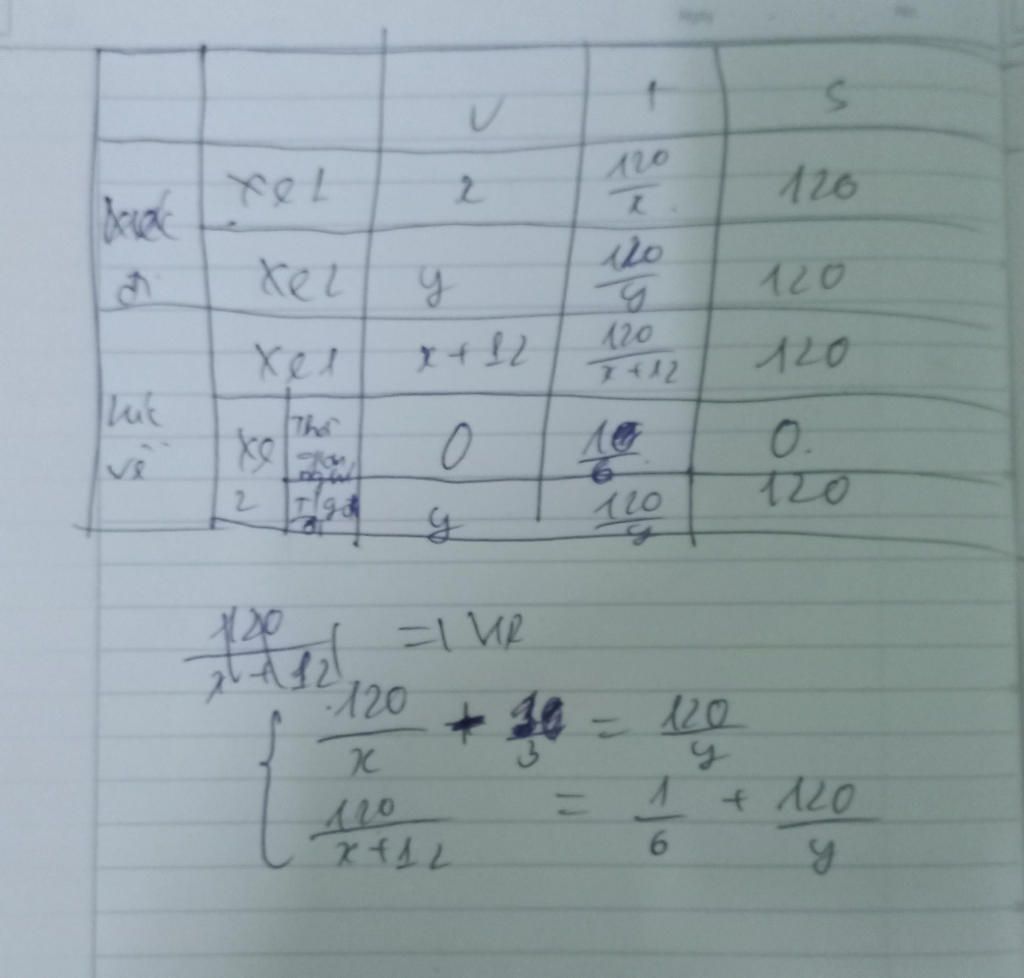 v t s
xe 1 x 120/x 120
đi xe 2 y 120/y 120
xe 1 x+12 120/(x+12) 120
lúc về xe 2 Thời gian nghỉ 0 1/6 0.
y 120/y 120
120/(x+12) = 1
{ 120/x + = 120/y
120/(x+12) = 1/6 + 120/y